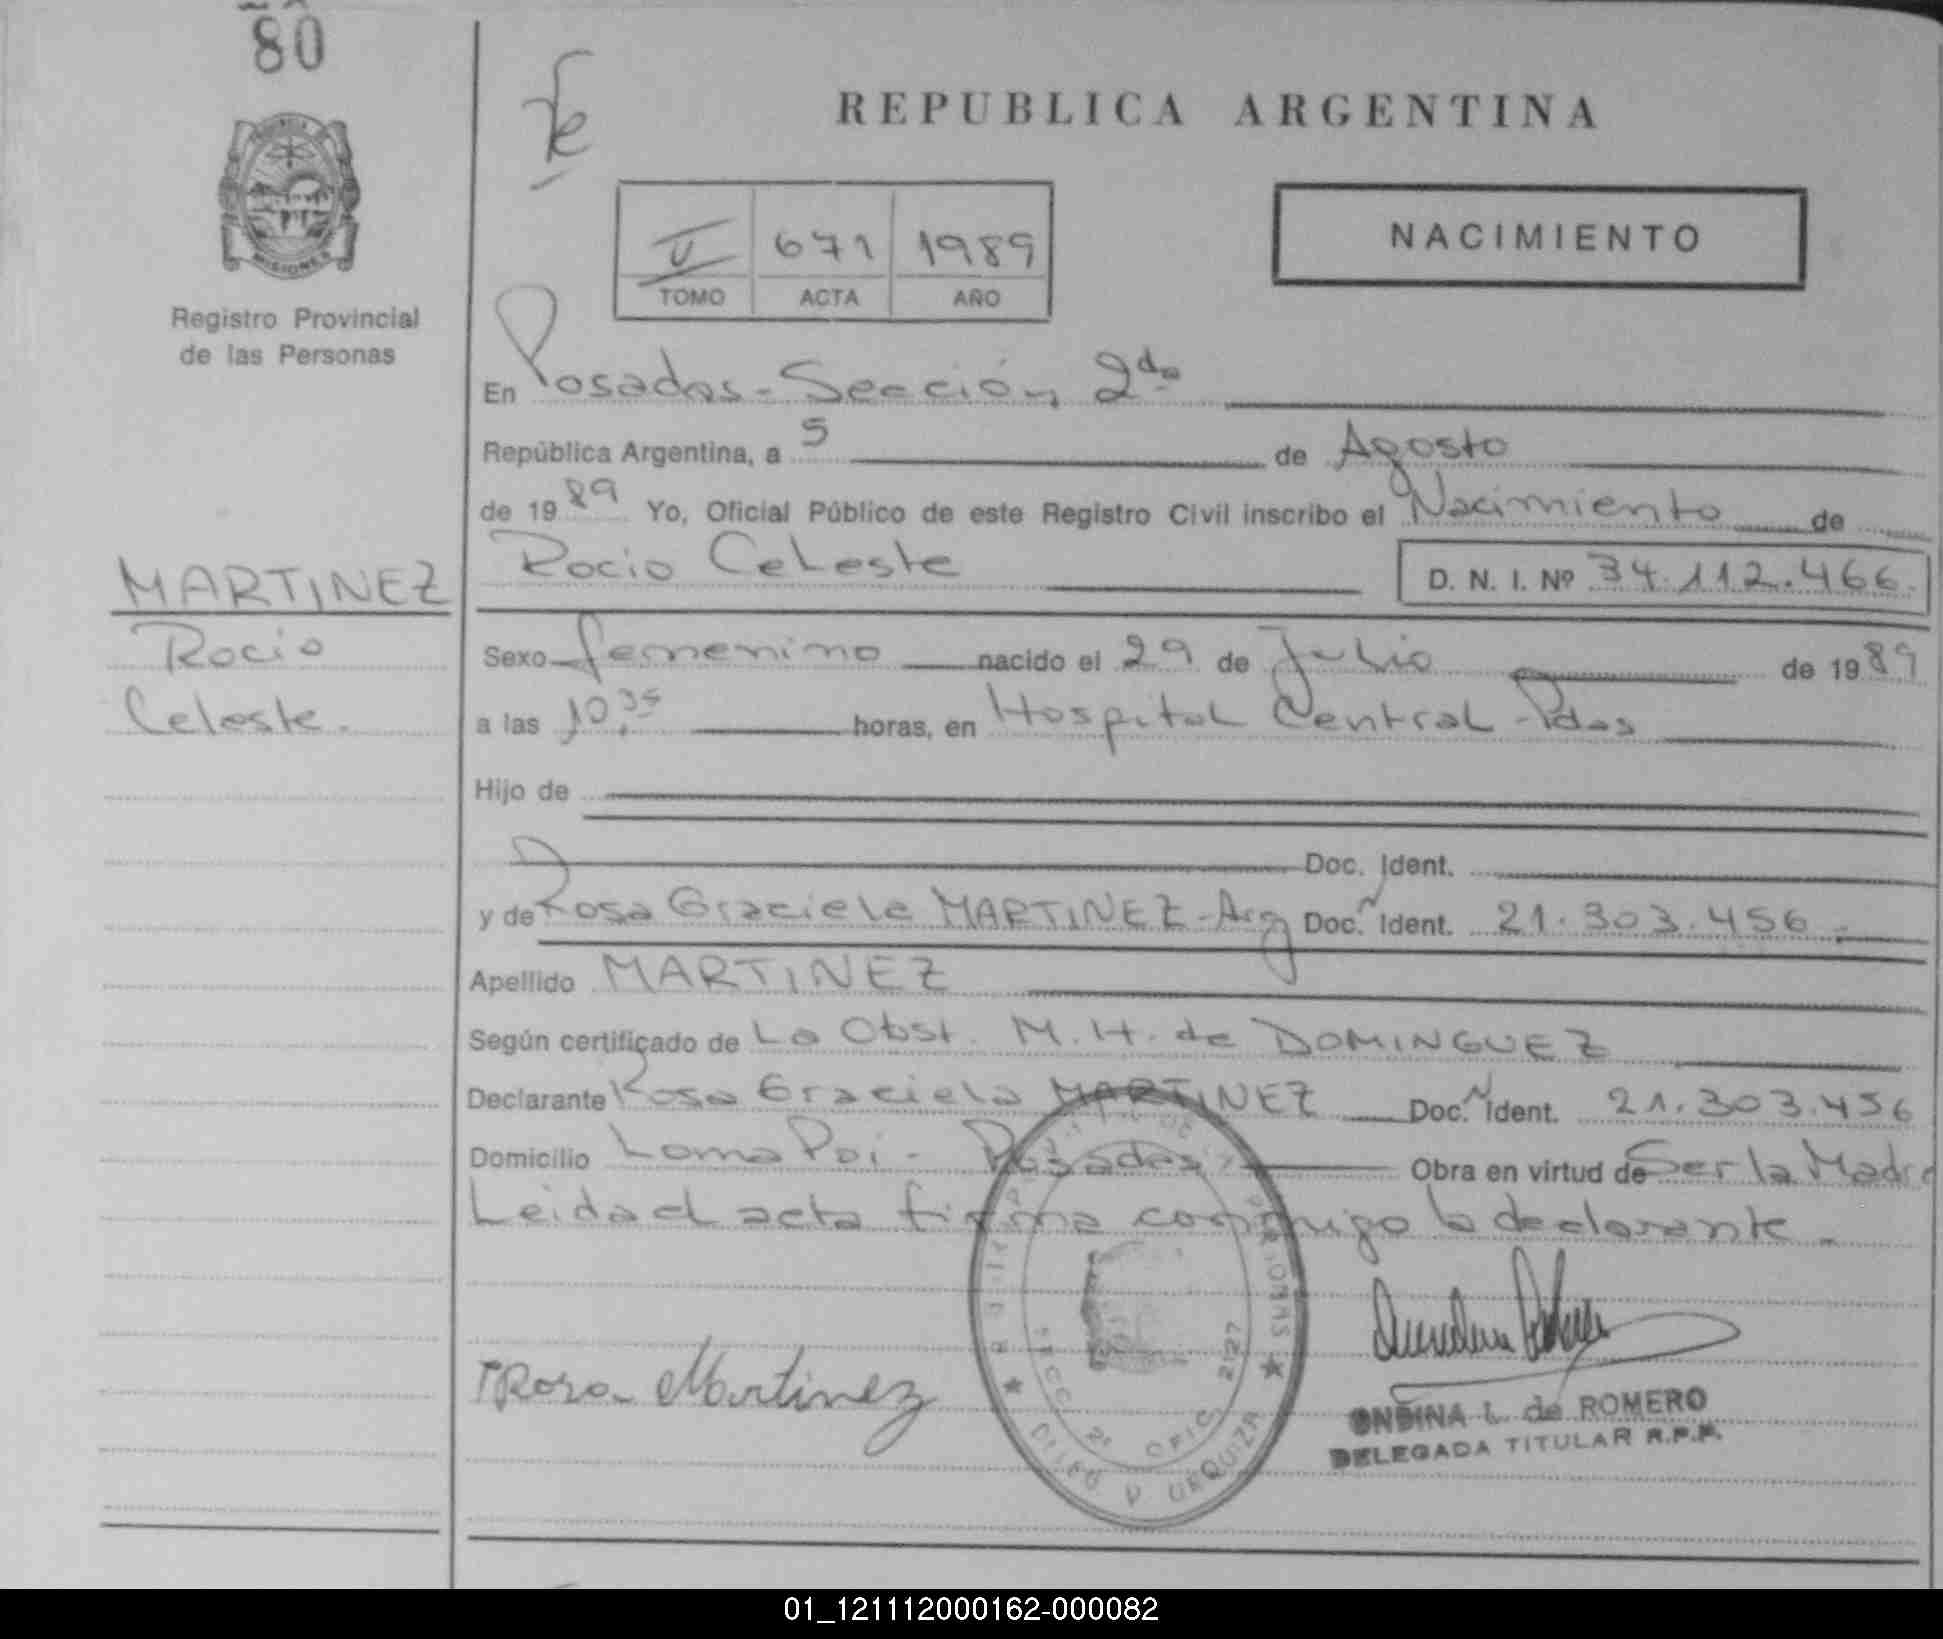 80
REPUBLICA ARGENTINA
MISIONES
Registro Provincial
de las Personas
II 671 1989
TOMO ACTA AÑO
NACIMIENTO
En Posadas - Sección 2da
República Argentina, a 5 de Agosto
de 1989 Yo, Oficial Público de este Registro Civil inscribo el Nacimiento de
Rocio Celeste D. N. I. Nº 34.112.466.
MARTINEZ
Rocio
Celeste.
Sexo femenino nacido el 29 de Julio de 1989
a las 10.35 horas, en Hospital Central - Pdas
Hijo de
Doc. Ident.
y de Rosa Graciela MARTINEZ - Arg Doc. Ident. 21.303.456
Apellido MARTINEZ
Según certificado de La Obst. M. H. de DOMINGUEZ
Declarante Rosa Graciela MARTINEZ Doc. Ident. 21.303.456
Domicilio Loma Poi - Posadas Obra en virtud de Ser la Madre
Leida el acta firma conmigo la declarante.
Rosa Martinez
SECC. 2ª OFIC. 2127
Y URQUIZA
ONDINA L. de ROMERO
DELEGADA TITULAR R.P.P.
01_121112000162-000082